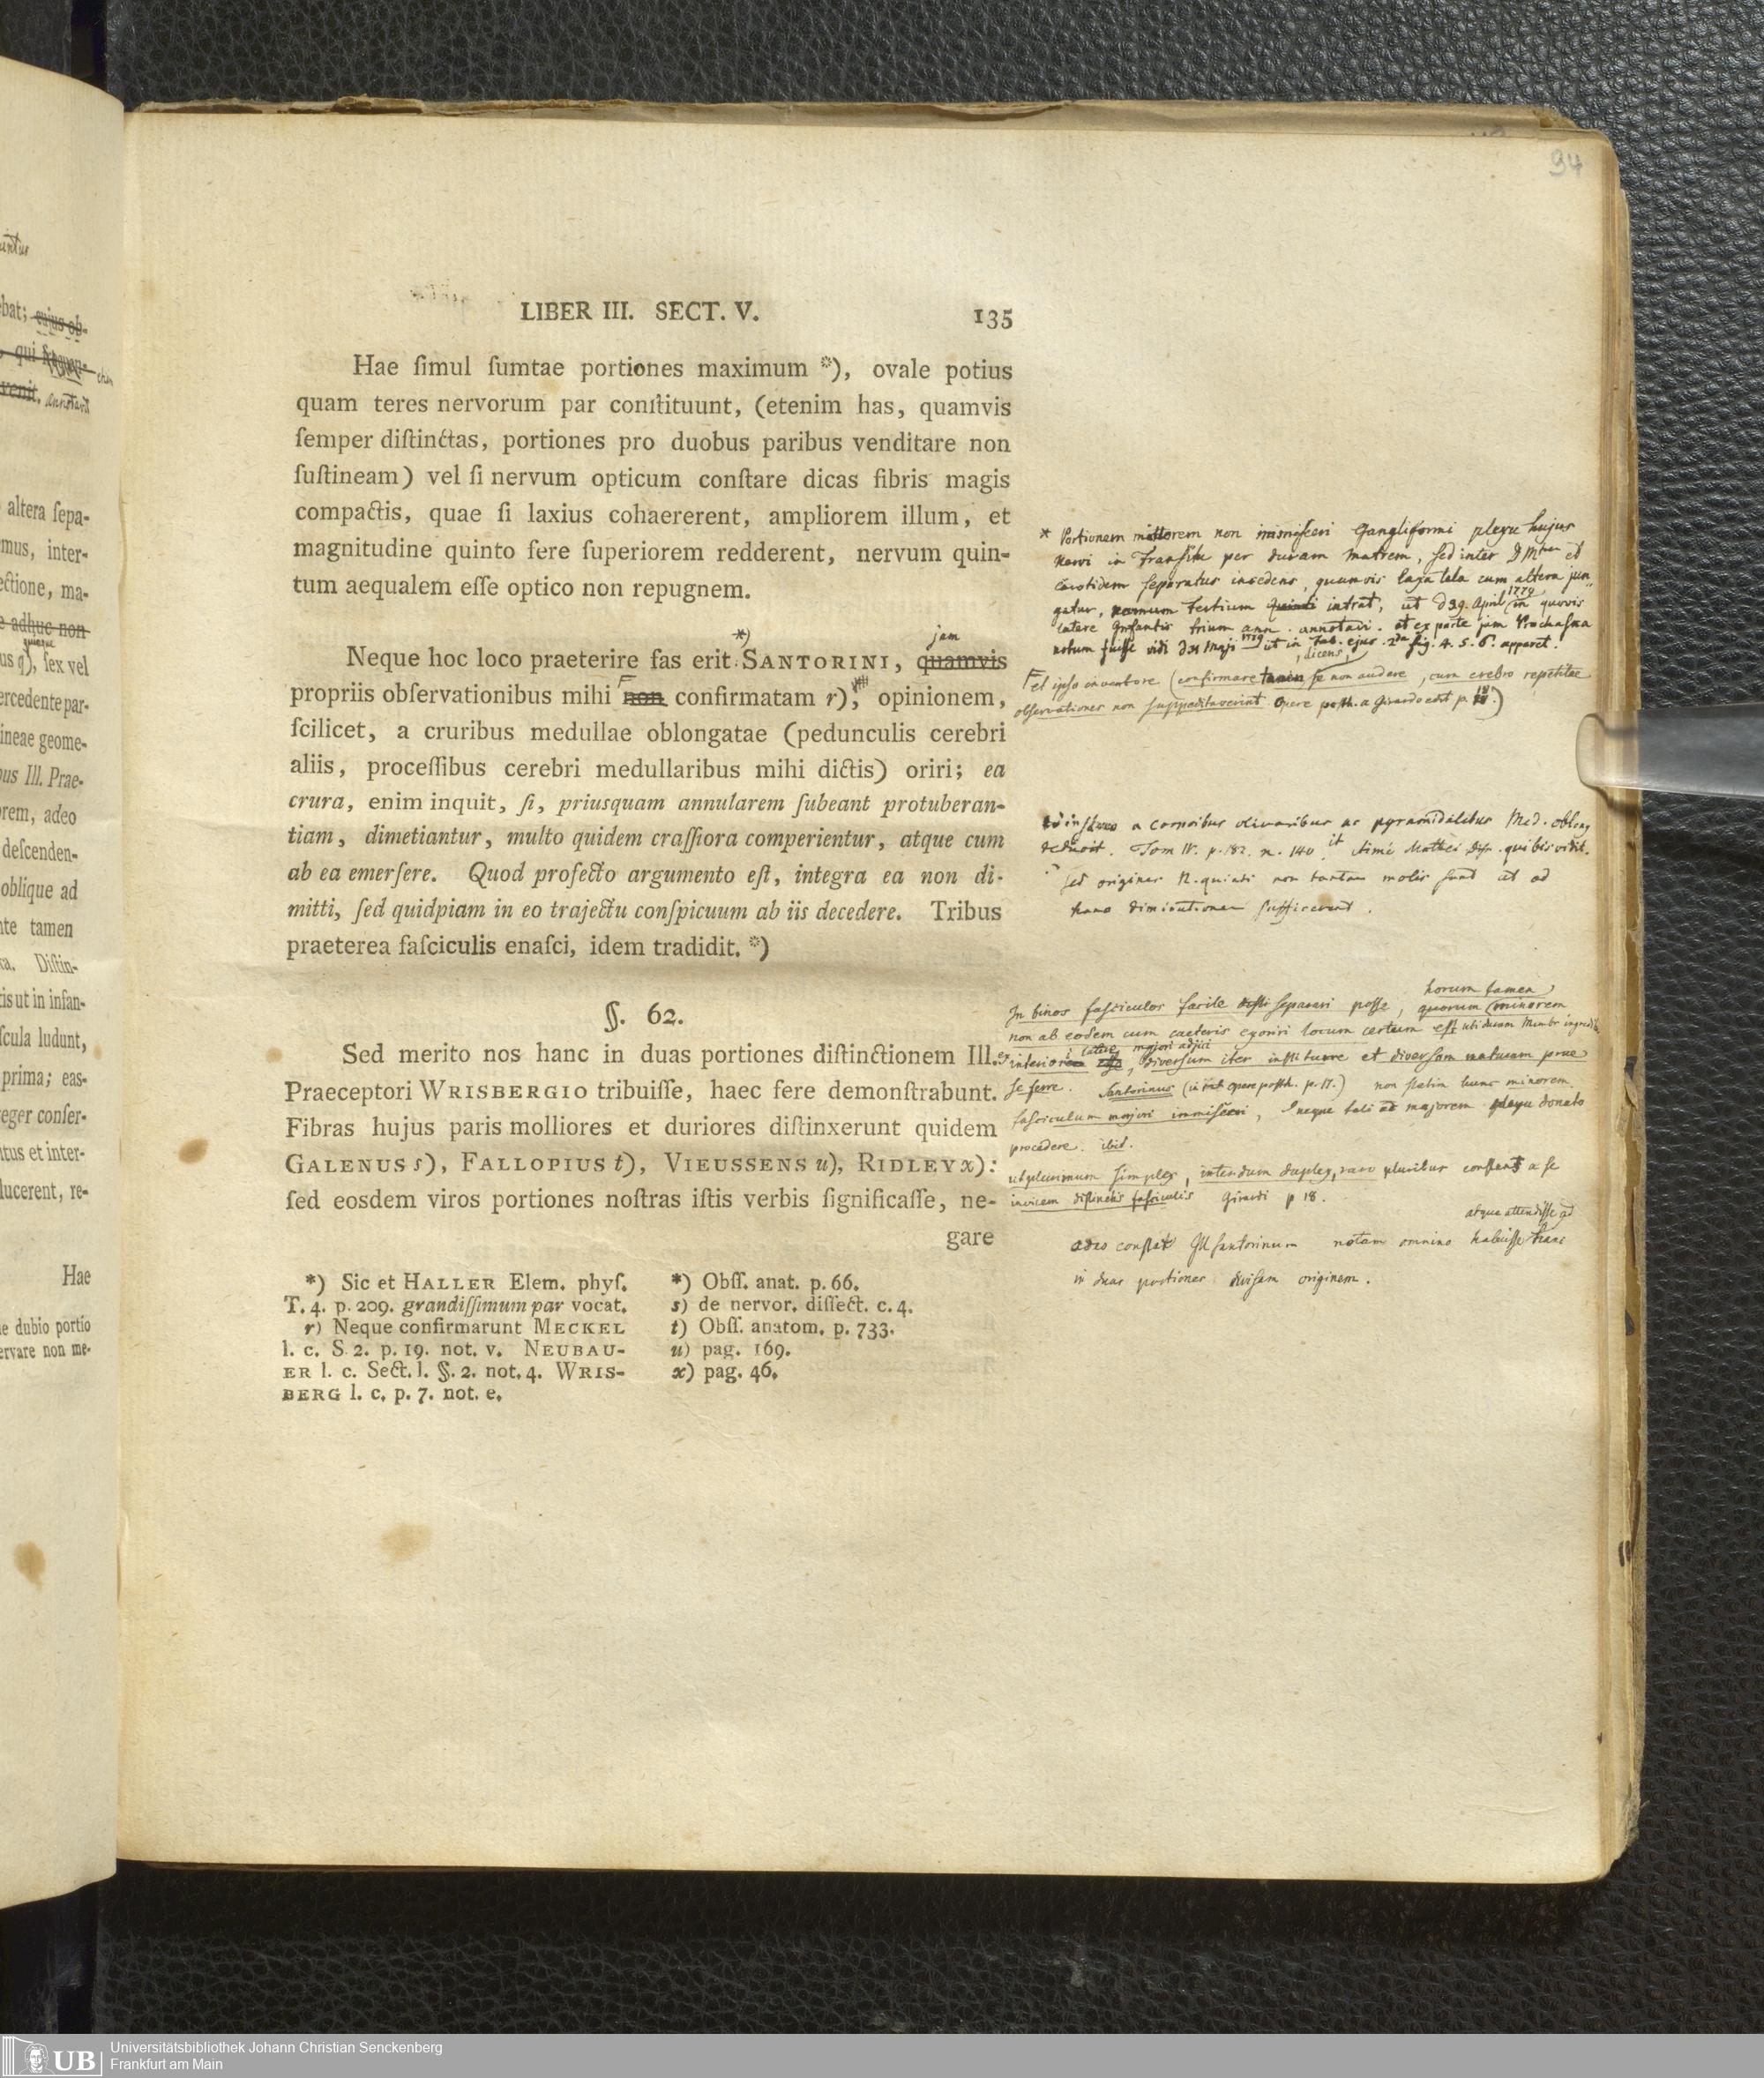 94
LIBER III. SECT. V. 135
Hae ſimul ſumtae portiones maximum *), ovale potius
quam teres nervorum par conſtituunt, (etenim has, quamvis
ſemper diſtinctas, portiones pro duobus paribus venditare non
ſuſtineam) vel ſi nervum opticum conſtare dicas fibris magis
compactis, quae ſi laxius cohaererent, ampliorem illum, et
magnitudine quinto fere ſuperiorem redderent, nervum quin-
tum aequalem eſſe optico non repugnem.
*) jam
Neque hoc loco praeterire fas erit SANTORINI, quamvis
propriis obſervationibus mihi non confirmatam r), opinionem,
ſcilicet, a cruribus medullae oblongatae (pedunculis cerebri
aliis, proceſſibus cerebri medullaribus mihi dictis) oriri; ea
crura, enim inquit, ſi, priusquam annularem ſubeant protuberan-
tiam, dimetiantur, multo quidem craſſiora comperientur, atque cum
ab ea emerſere. Quod profecto argumento eſt, integra ea non di-
mitti, ſed quidpiam in eo trajectu conſpicuum ab iis decedere. Tribus
praeterea faſciculis enaſci, idem tradidit. *)
§. 62.
Sed merito nos hanc in duas portiones diſtinctionem Ill.
Praeceptori WRISBERGIO tribuiſſe, haec fere demonſtrabunt.
Fibras hujus paris molliores et duriores diſtinxerunt quidem
GALENUS s), FALLOPIUS t), VIEUSSENS u), RIDLEY x):
ſed eosdem viros portiones noſtras iſtis verbis ſignificaſſe, ne-
gare
*) Sic et HALLER Elem. phyſ.
T. 4. p. 209. grandiſſimum par vocat.
r) Neque confirmarunt MECKEL
l. c. S. 2. p. 19. not. v. NEUBAU-
ER l. c. Sect. l. §. 2. not. 4. WRIS-
BERG l. c. p. 7. not. e.
*) Obſſ. anat. p. 66.
s) de nervor. diſſect. c. 4.
t) Obſſ. anatom. p. 733.
u) pag. 169.
x) pag. 46.
* Portionem minorem non immiſceri Gangliformi plexu hujus
nervi in Transitu per duram matrem, ſed inter D Mtrem et
Carotidem ſeparatus incedens, quamvis laxa tela cum altera jun
gatur, ramum tertium intrat, ut d 29. April 1779 in quovis
latere Infantis trium ann. annotavi. et ex parte jam Prochaſka
notum fuiſſe vidi d 31 Maji 1779 ut in Tab. ejus 2da fig. 4. 5. 6. apparet.
dicens,
et ipso inventore (confirmare ſe non audere, cum crebro repetitae
obſervationes non ſuppeditaverint. Opere poſth. a Girardo edit p. 18.)
a corporibus olivaribus ac pyramidalibus Med. oblong
deducit. Tom IV. p. 182. n. 140. it
ſed origines N. quinti non tantae molis ſunt ut ad
hanc diminutionem ſufficerent.
horum tamen
In binos faſciculos facile ſeparari poſſe, quorum minorem
non ab eodem cum caeteris exoriri locum certum eſt ubi duram Membr ingredi
latere majori adjici
interiorem, diverſum iter inſtituere et diverſam naturam prae
ſe ferre. Santorinus (in opere poſth. p. 17.) non ſtatim hunc minorem
faſciculum majori immiſceri, neque tali ad majorem plexu donato
procedere. ibid.
utplurimum ſimplex, interdum duplex, raro pluribus conſtans a ſe
invicem diſtinctis faſciculis Girardi p 18.
atque attendiſſe ad
adeo conſtat Ill Santorinum notam omnino habuiſſe hanc
in duas portiones diviſam originem.
bat; cujus ob-
qui
venit. annotavit
altera ſepa-
mus, inter-
ectione, ma-
e adhuc non
us q), ſex vel
ercedente par-
ineae geome-
us Ill. Prae-
rem, adeo
deſcenden-
oblique ad
nte tamen
ra. Diſtin-
tis ut in infan-
ſcula ludunt,
prima; eas-
eger conſer-
itus et inter-
lucerent, re-
Hae
e dubio portio
ervare non me-
UB
Universitätsbibliothek Johann Christian Senckenberg
Frankfurt am Main